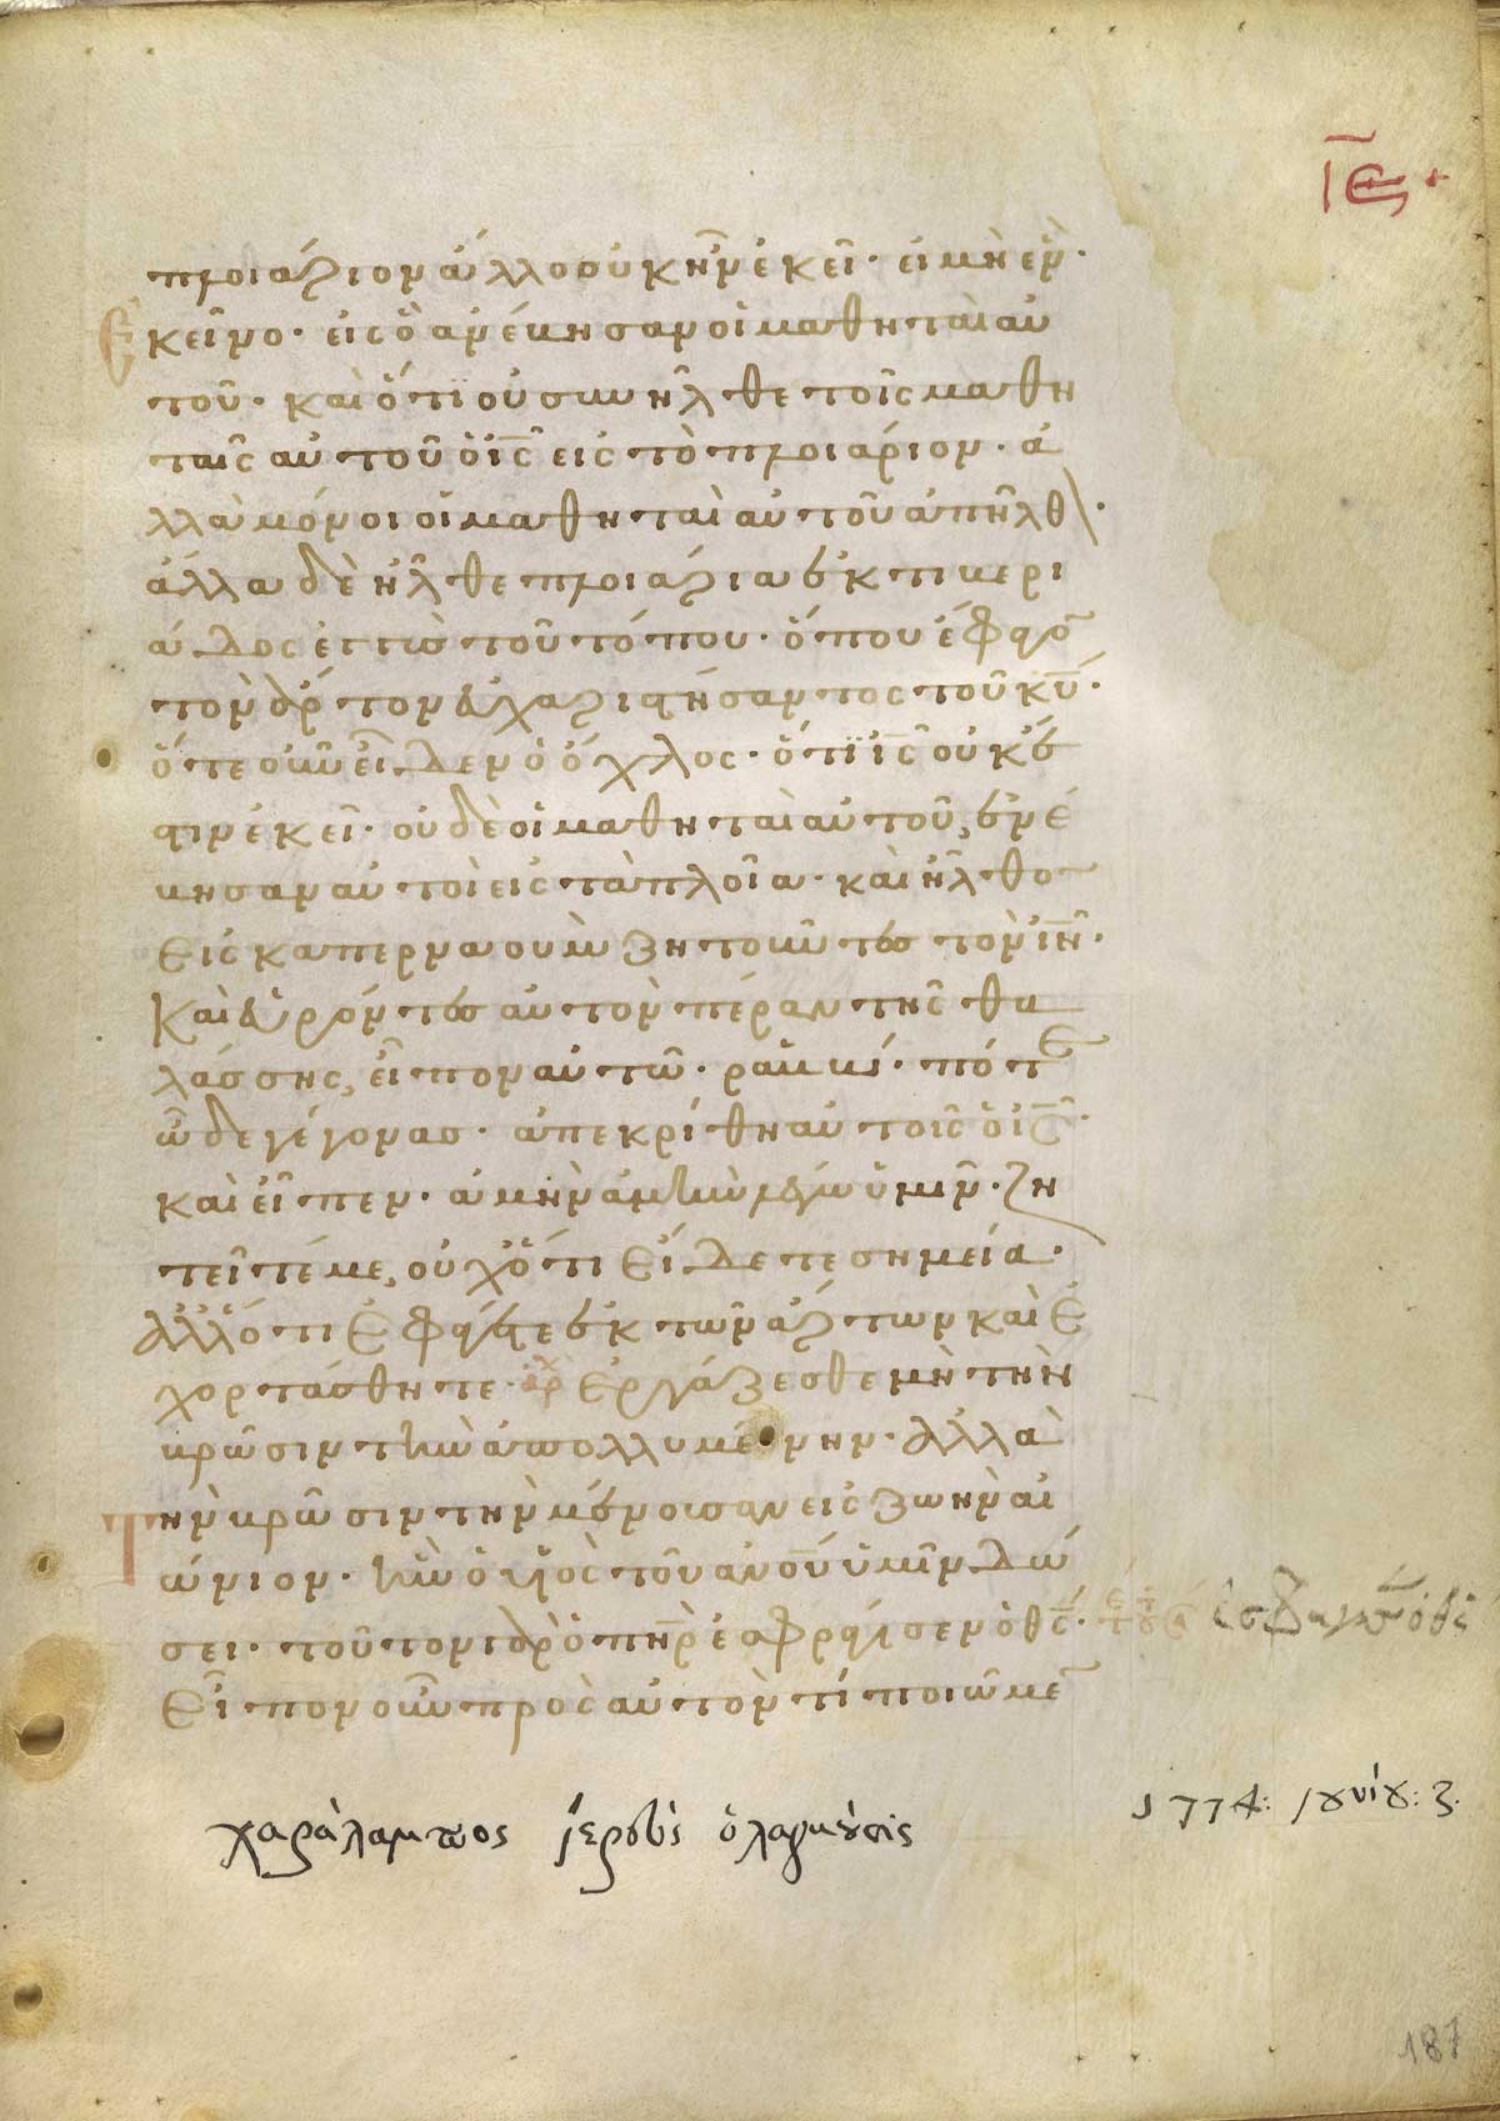 ιε
πλοιάριον ἄλλο οὐκ ἦν ἐκεῖ· εἰ μὴ ἓν·
ἐκεῖνο· εἰς ὃ ἀνέβησαν οἱ μαθηταὶ αὐ
τοῦ· καὶ ὅτι οὐ συνῆλθε τοῖς μαθη
ταῖς αὐτοῦ ὁ ις εἰς τὸ πλοιάριον· ἀ
λλὰ μόνοι οἱ μαθηταὶ αὐτοῦ ἀπῆλθ·
ἄλλα δὲ ἦλθε πλοιάρια ἐκ τιβερι
άδος ἐγγὺς τοῦ τόπου· ὅπου ἔφαγο
τὸν ἄρτον εὐχαριστήσαντος τοῦ κυ·
ὅτε οὖν εἶδεν ὁ ὄχλος· ὅτι ις οὐκ ἔ
στιν ἐκεῖ· οὐδὲ οἱ μαθηταὶ αὐτοῦ, ἐνέ
βησαν αὐτοὶ εἰς τὰ πλοῖα· καὶ ἦλθο
εἰς καπερναουμ ζητοῦντες τὸν ιν·
Καὶ εὑρόντες αὐτὸν πέραν τῆς θα
λάσσης, εἶπον αὐτῶ· ραββί· πότε
ὧδε γέγονας· ἀπεκρίθη αὐτοῖς ὁ ις·
καὶ εἶπεν· ἀμὴν ἀμὴν λέγω ὑμῖν· ζη
τεῖτέ με, οὐχ ὅτι εἴδετε σημεία·
ἀλλ' ὅτι ἐφάγετε ἐκ τῶν ἄρτων καὶ ἐ
χορτάσθητε· ἀρχ ἐργάζεσθε μὴ τὴν
βρῶσιν τὴν ἀπολλυμένην· ἀλλὰ
τὴν βρῶσιν τὴν μένουσαν εἰς ζωὴν αἰ
ώνιον· ἣν ὁ υἱὸς τοῦ ανου ὑμῖν δώ
σει· τοῦτον γὰρ ὁ πηρ ἐσφράγισεν ὁ θς·
Εἶπον οὖν πρὸς αὐτὸν τί ποιῶμε
χαράλαμπος
1774: ιουνίου: 3.
187